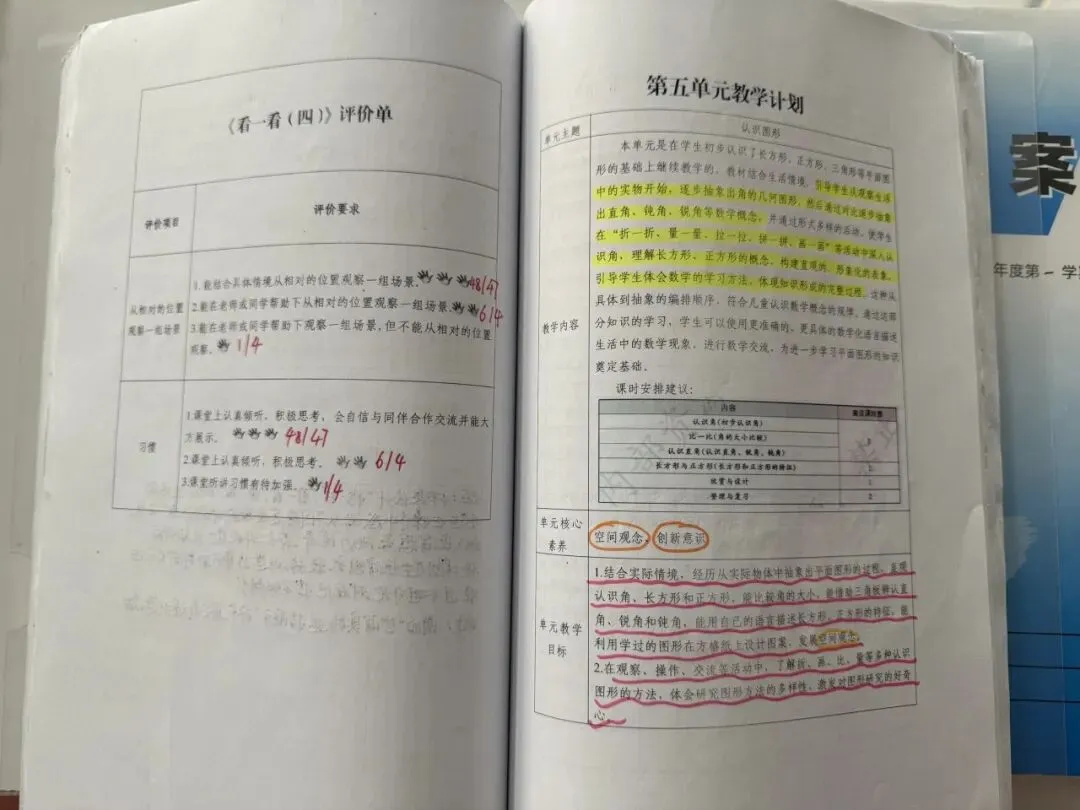 《看一看（四）》评价单
评价项目
评价要求
从相对的位置
观察一组场景
1.能结合具体情境从相对的位置观察一组场景。 48/47
2.能在老师或同学帮助下从相对的位置观察一组场景。 6/4
3.能在老师或同学帮助下观察一组场景，但不能从相对的位置
观察。 1/4
习惯
1.课堂上认真倾听、积极思考，会自信与同伴合作交流并能大
方展示。 48/47
2.课堂上认真倾听，积极思考。 6/4
3.课堂听讲习惯有待加强。 1/4
第五单元教学计划
单元主题
认识图形
教学内容
本单元是在学生初步认识了长方形、正方形、三角形等平面图
形的基础上继续教学的。教材结合生活情境，引导学生从观察生活
中的实物开始，逐步抽象出角的几何图形，然后通过对比逐步抽象
出直角、钝角、锐角等数学概念。并通过形式多样的活动，使学生
在“折一折、量一量、拉一拉、拼一拼、画一画”等活动中深入认
识角，理解长方形、正方形的概念，构建直观的、形象化的表象，
引导学生体会数学的学习方法，体现知识形成的完整过程。这种从
具体到抽象的编排顺序，符合儿童认识数学概念的规律。通过这部
分知识的学习，学生可以使用更准确的、更具体的数学化语言描述
生活中的数学现象，进行数学交流，为进一步学习平面图形的知识
奠定基础。
课时安排建议：
内容 建议课时数
认识角（初步认识角）
比一比（角的大小比较）
认识直角（认识直角、锐角、钝角）
长方形与正方形（长方形和正方形的特征）
欣赏与设计 1
整理与复习 2
单元核心
素养
空间观念、创新意识
单元教学
目标
1.结合实际情境，经历从实际物体中抽象出平面图形的过程，直观
认识角、长方形和正方形，能比较角的大小，能借助三角板辨认直
角、锐角和钝角，能用自己的语言描述长方形、正方形的特征，能
利用学过的图形在方格纸上设计图案，发展空间观念。
2.在观察、操作、交流等活动中，了解折、画、比、量等多种认识
图形的方法，体会研究图形方法的多样性，激发对图形研究的好奇
心。
案
年度第一学